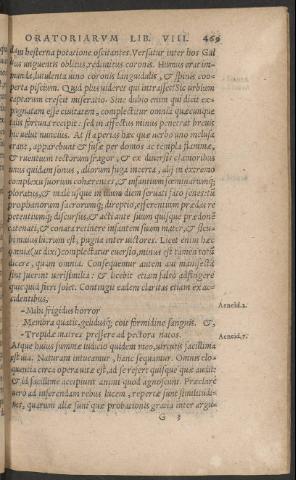 ORATORIARVM LIB. VIII. 469
dam hesterna potatione oscitantes. Versatur inter hos Gal
lius unguentis oblitus, redimitus coronis. Humus erat im-
munda, lutulenta uino coronis languidulis, & spinis coo-
perta piscium. Quid plus uideret qui intrasset? Sic urbium
captarum crescit miseratio. Sine dubio enim qui dicit ex-
pugnatam esse ciuitatem, complectitur omnia quæcunque
talis fortuna recipit: sed in affectus minus penetrat breuis
hic uelut nuncius. At si aperias hæc quæ uerbo uno inclusa
erant, apparebunt & fusæ per domos ac templa flammæ,
& ruentium tectorum fragor, & ex diuersis clamoribus
unus quidam sonus, aliorum fuga incerta, alij in extremo
complexu suorum cohærentes, & infantium fœminarumq́;
ploratus, & male usque in illum diem seruati fato senes: tum
prophanorum sacrorumq́; direptio, efferentium prædas re
petentiumq́; discursus, & acti ante suum quisque prædonē
catenati, & conata retinere infantem suum mater, & sicu-
bi maius lucrum est, pugna inter uictores. Licet enim hæc
omnia (ut dixi) complectatur euersio, minus est tamen totū
dicere, quam omnia. Consequemur autem ut manifesta
sint, si fuerint uerisimilia: & licebit etiam falso adfingere
quicquid fieri solet. Continget eadem claritas etiam ex ac-
cidentibus,
-Mihi frigidus horror Aeneid.2.
Membra quatit, gelidusq́; coit formidine sanguis. &,
-Trepidæ matres pressere ad pectora natos. Aeneid.7.
Atque huius summæ iudicio quidem meo, uirtutis facillima
est uia. Naturam intueamur, hanc sequamur. Omnis elo-
quentia circa opera uitæ est, ad se refert quisque quæ audit:
& id facillime accipiunt animi quod agnoscunt. Præclare
uero ad inferendam rebus lucem, repertæ sunt similitudi-
nes, quarum aliæ sunt quæ probationis gratia inter argu-
G 3